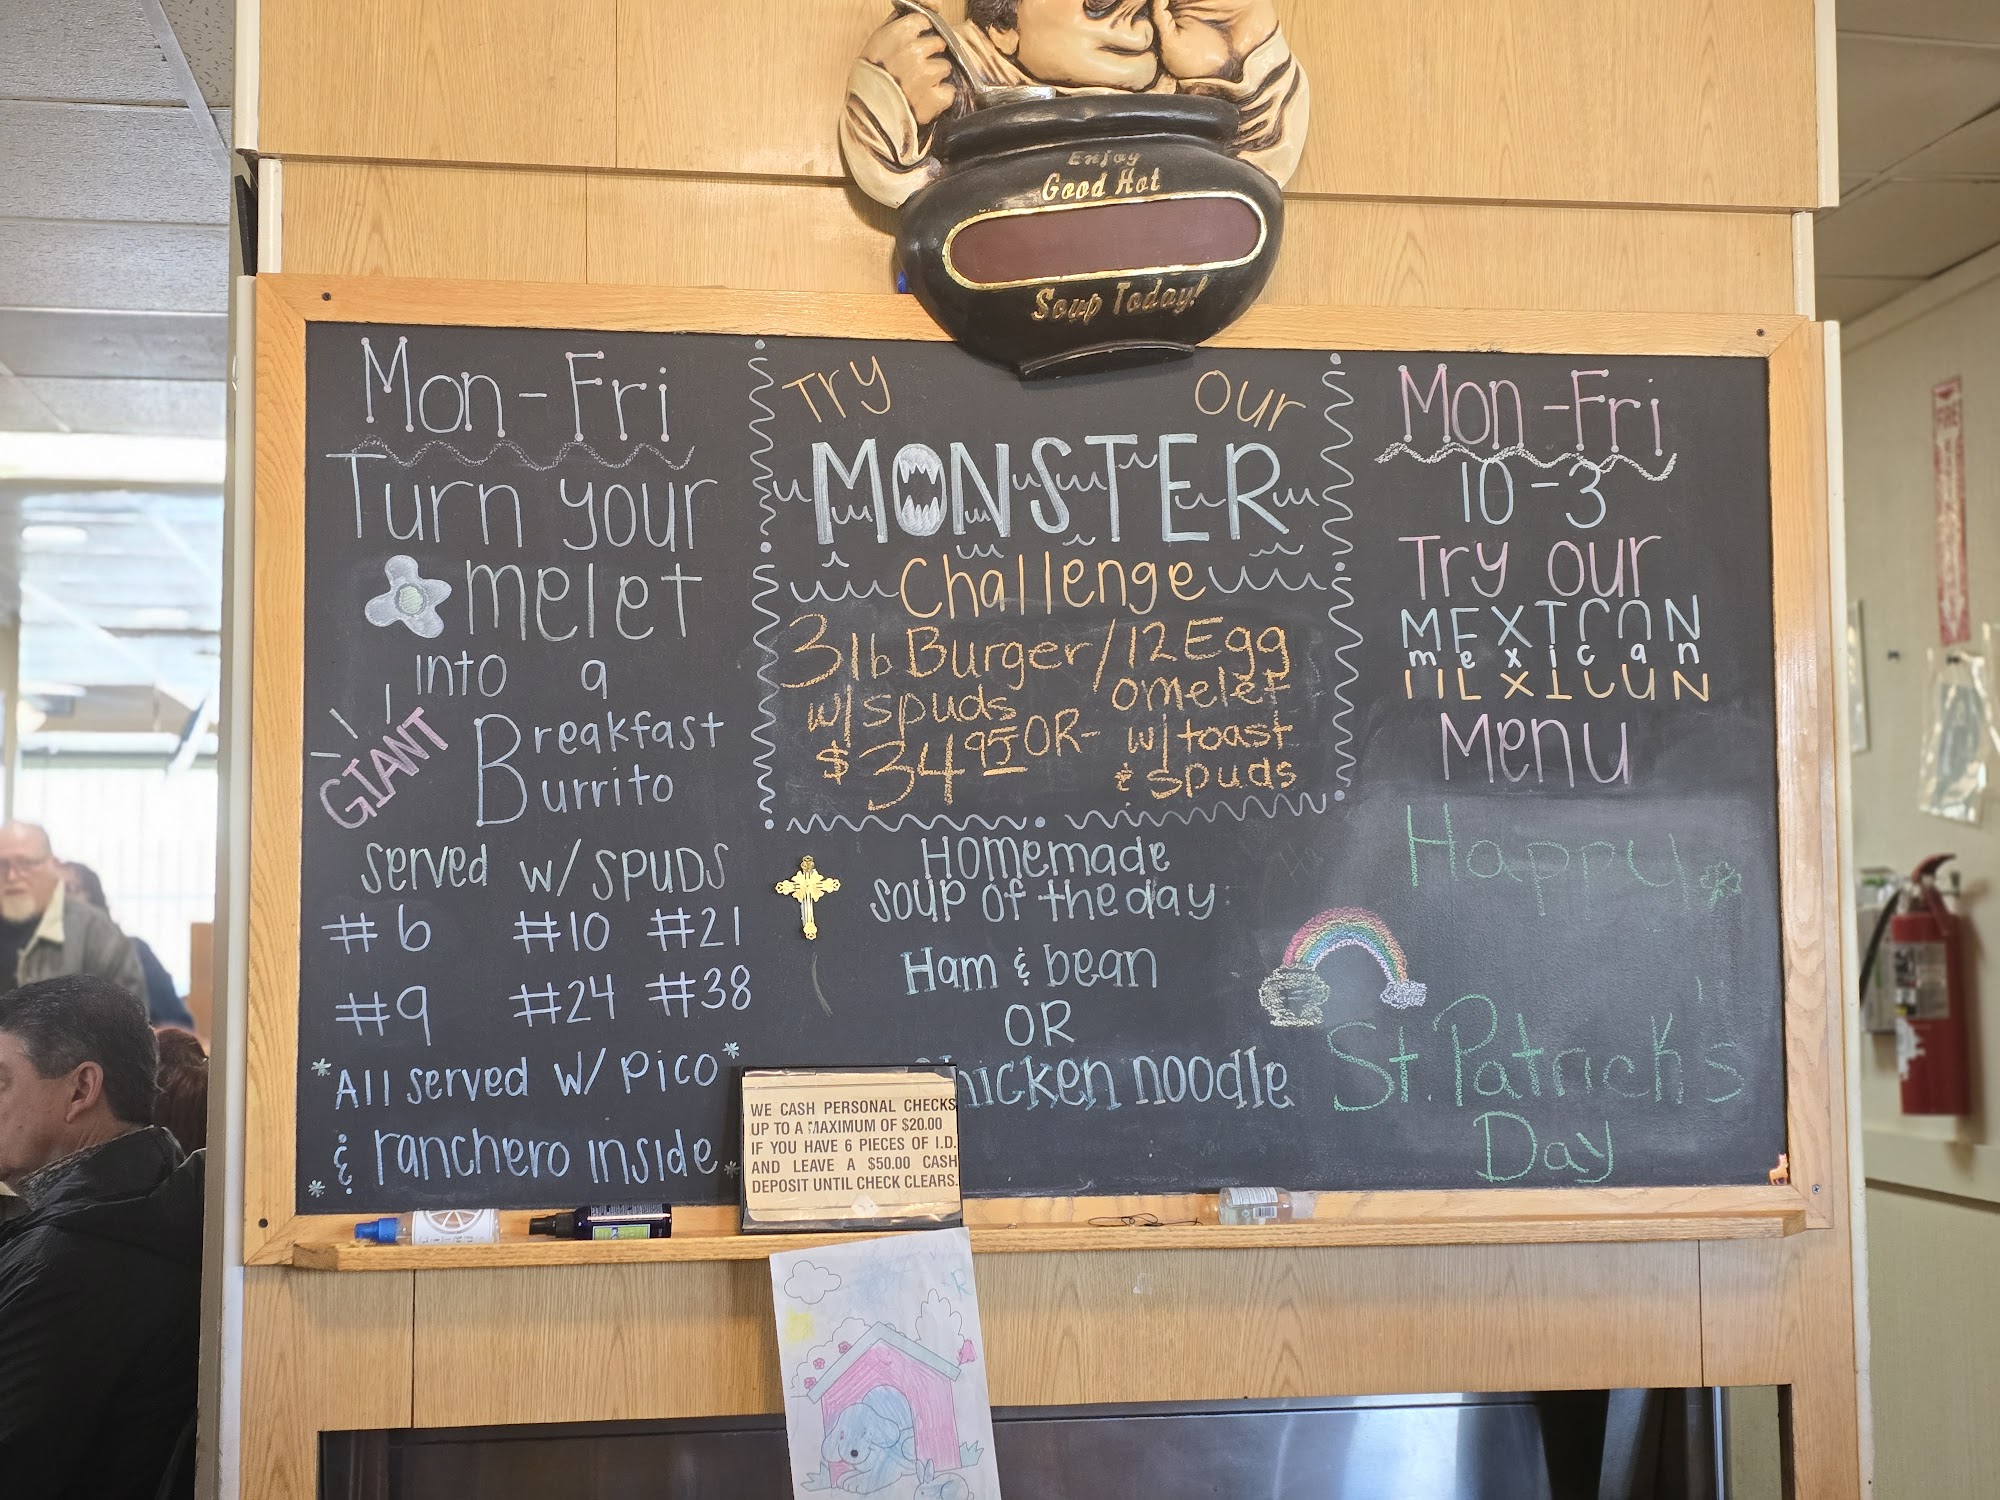 Enjoy
Good Hot
Soup Today!
Mon-Fri
Turn your
melet
into a
GIANT
Breakfast
Burrito
Served w/ SPUDS
#6 #10 #21
#9 #24 #38
*All served w/ pico*
*& ranchero inside*
Try Our
MONSTER
Challenge
3lb Burger/12 Egg
w/spuds omelet
$34.95 OR- w/toast
& spuds
Homemade
soup of the day:
Ham & bean
OR
hicken noodle
Mon-Fri
10-3
Try our
MEXICAN
mexican
MEXICAN
Menu
Happy
St. Patrick's
Day
WE CASH PERSONAL CHECKS
UP TO A MAXIMUM OF $20.00
IF YOU HAVE 6 PIECES OF I.D.
AND LEAVE A $50.00 CASH
DEPOSIT UNTIL CHECK CLEARS.
FIRE
R